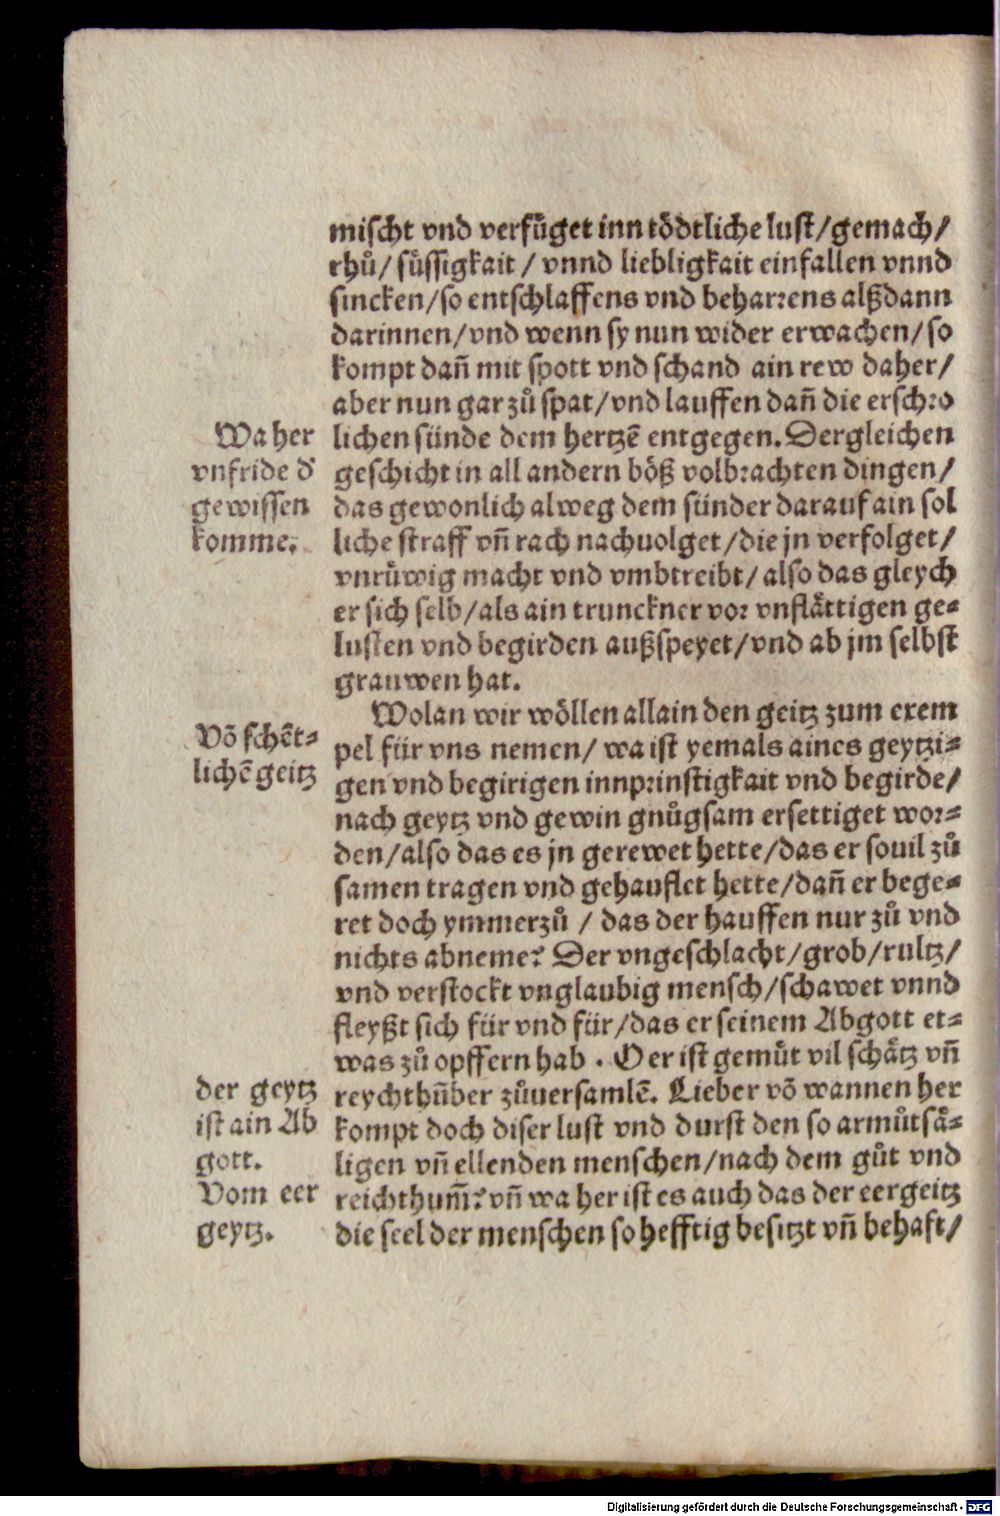 mischt vnd verfüget inn tödtliche lust/gemach/
rhů/ süssigkait / vnnd liebligkait einfallen vnnd
sincken/so entschlaffens vnd beharrens alßdann
darinnen/vnd wenn sy nun wider erwachen/so
kompt dañ mit spott vnd schand ain rew daher/
aber nun gar zů spat/vnd lauffen dañ die erschro
lichen sünde dem hertzẽ entgegen. Dergleichen
geschicht in all andern böß volbrachten dingen/
das gewonlich alweg dem sünder darauf ain sol
liche straff vñ rach nachuolget/die jn verfolget/
vnrůwig macht vnd vmbtreibt/also das gleych
er sich selb/als ain trunckner vor vnflättigen ge-
lusten vnd begirden außspeyet/vnd ab jm selbst
grauwen hat.
Wa her
vnfride d'
gewissen
komme.
Wolan wir wöllen allain den geitz zum exem
pel für vns nemen/ wa ist yemals aines geytzi-
gen vnd begirigen innprinstigkait vnd begirde/
nach geytz vnd gewin gnůgsam ersettiget wor-
den/also das es jn gerewet hette/das er souil zů
samen tragen vnd gehauflet hette/dañ er bege-
ret doch ymmerzů / das der hauffen nur zů vnd
nichts abneme? Der vngeschlacht/grob/rultz/
vnd verstockt vnglaubig mensch/schawet vnnd
fleyßt sich für vnd für/das er seinem Abgott et-
was zů opffern hab . O er ist gemůt vil schätz vñ
reychthům̃ber zůuersamlẽ. Lieber võ wannen her
kompt doch diser lust vnd durst den so armůtsä-
ligen vñ ellenden menschen/nach dem gůt vnd
reichthum̃? vñ wa her ist es auch das der eergeitz
die seel der menschen so hefftig besitzt vñ behaft/
Võ schẽt-
lichẽ geitz
der geytz
ist ain Ab
gott.
Vom eer
geytz.
Digitalisierung gefördert durch die Deutsche Forschungsgemeinschaft - DFG